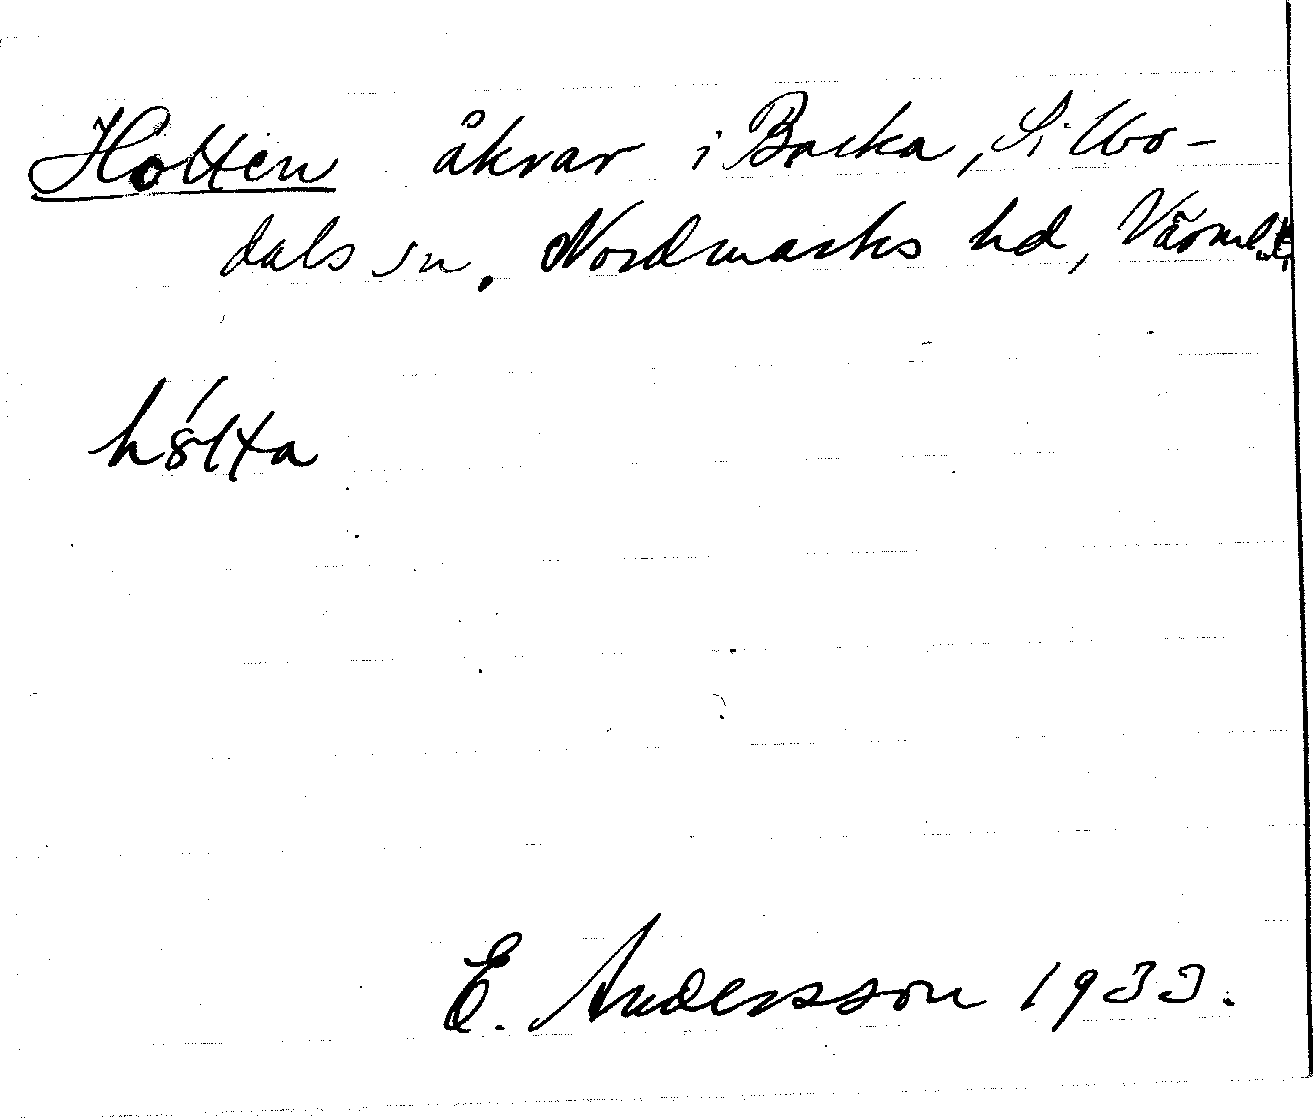 Holten åkrar i Backa, Silbo-
dals sn. Nordmarks hd, Värml.
hölta
E. Andersson 1933.